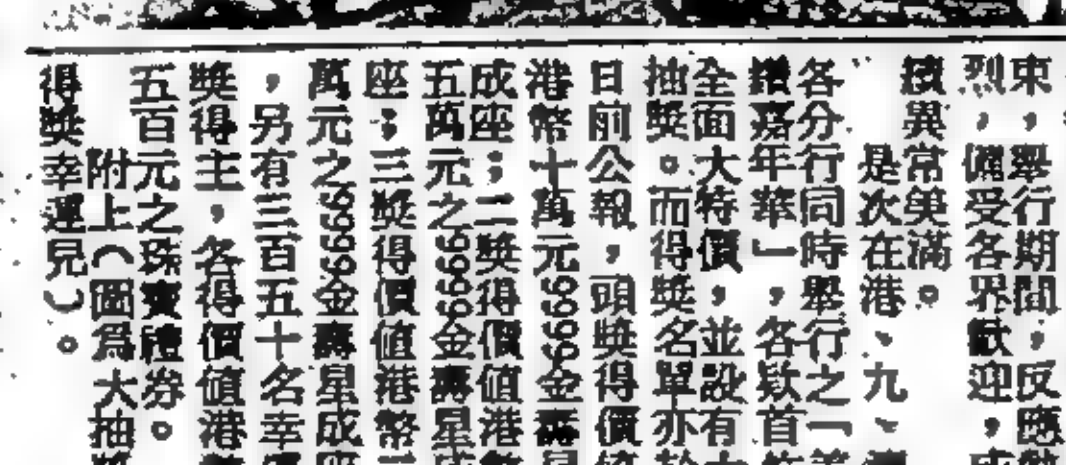 東，舉行期間，反應
烈，備受各界歡迎，
績異常美滿。
是次在港、九、
各分行同時舉行之「
嘉年華」，各款首
全面大特價，並設有
抽獎。而得獎名單亦
日前公報，頭獎得價
港幣十萬元99999金壽
成座；二獎得價值港
五萬元之99999金壽星
座；三獎得價值港幣
萬元之99999金壽星成
，另有三百五十名幸
獎得主，各得價值港
五百元之珠寶禮券。
附上（圖爲大抽
得獎幸運兒）。